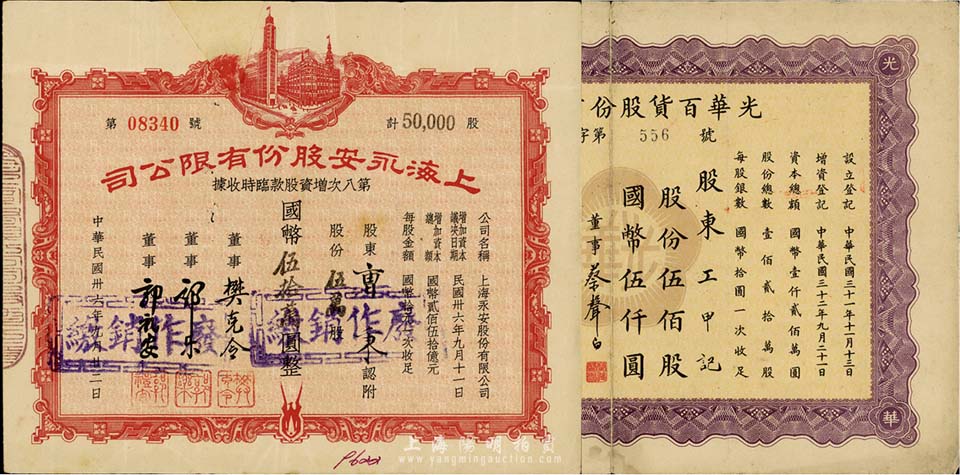 第 08340 號
計 50,000 股
上海永安股份有限公司
第八次增資股款臨時收據
公司名稱 上海永安股份有限公司
增加資本議決日期 民國卅六年九月十一日
增加資本總額 國幣貳佰伍拾億元
每股金額 國幣拾元一次收足
股東 認附
股份 伍萬 股
國幣伍拾萬圓整
董事 樊克令
董事
董事
中華民國卅六年九月廿二日
繳銷作廢
繳銷作廢
P622
光
光華百貨股份
字第 556 號
設立登記 中華民國三十二年十一月十三日
增資登記 中華民國三十二年九月二十一日
資本總額 國幣壹仟貳佰萬圓
股份總數 壹佰貳拾萬股
每股銀數 國幣拾圓一次收足
股東 工甲記
股份伍佰股
國幣伍仟圓
董事 蔡聲白
華
上海陽明拍賣
www.yangmingauction.com